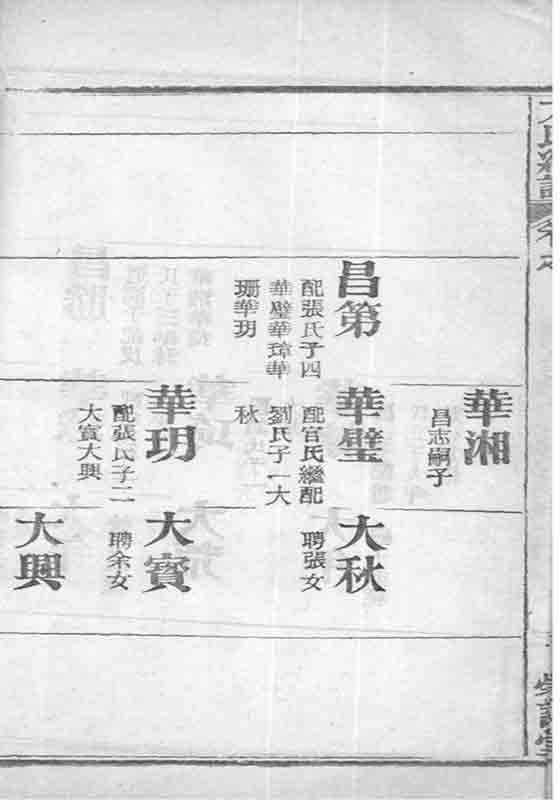 華湘
昌志嗣子
昌第
配張氏子四
華璧華璋華
珊華玥
華璧
配官氏繼配
劉氏子一大
秋
大秋
聘張女
華玥
配張氏子二
大賓大興
大賓
聘余女
大興